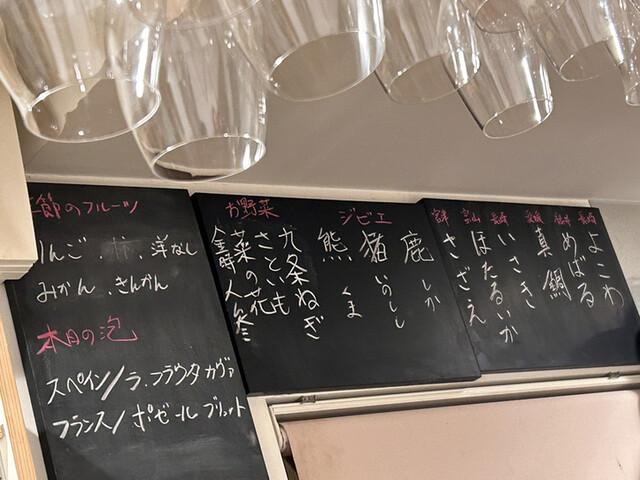 季節のフルーツ
りんご、柿、洋なし
みかん、きんかん
本日の泡
スペイン/ラ.フラウタ カヴァ
フランス/ポゼール ブリュット
お野菜
九条ねぎ
さといも
菜の花
金時人参
ジビエ
鹿 しか
猪 いのしし
熊 くま
長崎
よこわ
めばる
愛媛
真鯛
長崎
いさき
富山
ほたるいか
さざえ